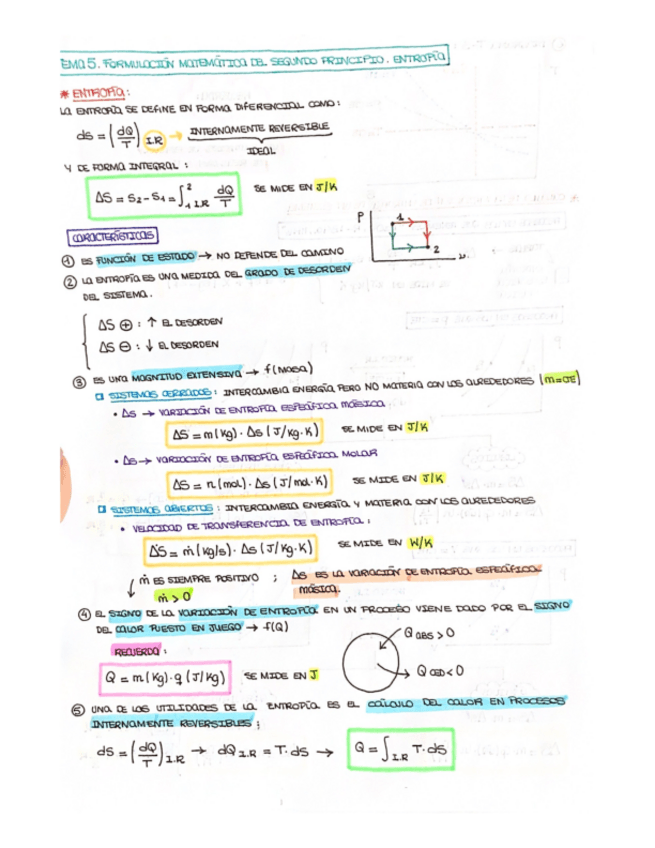 EMA 5. FORMULACIÓN MATEMÁTICA DEL SEGUNDO PRINCIPIO. ENTROPÍA
* ENTROPÍA:
LA ENTROPÍA SE DEFINE EN FORMA DIFERENCIAL COMO:
dS = (dQ/T) I.R → INTERNAMENTE REVERSIBLE
IDEAL
Y DE FORMA INTEGRAL :
ΔS = S2 - S1 = ∫₁² I.R dQ/T SE MIDE EN J/K
P 1 2 v
CARACTERÍSTICAS
① ES FUNCIÓN DE ESTADO → NO DEPENDE DEL CAMINO
② LA ENTROPÍA ES UNA MEDIDA DEL GRADO DE DESORDEN
DEL SISTEMA.
ΔS ⊕ : ↑ EL DESORDEN
ΔS ⊖ : ↓ EL DESORDEN
③ ES UNA MAGNITUD EXTENSIVA → f(MASA)
SISTEMAS CERRADOS : INTERCAMBIA ENERGÍA PERO NO MATERIA CON LOS ALREDEDORES (m=CTE)
• Δs → VARIACIÓN DE ENTROPÍA ESPECÍFICA MÁSICA
ΔS = m(kg) · Δs (J/kg·K) SE MIDE EN J/K
• Δs → VARIACIÓN DE ENTROPÍA ESPECÍFICA MOLAR
ΔS = n(mol) · Δs (J/mol·K) SE MIDE EN J/K
SISTEMAS ABIERTOS : INTERCAMBIA ENERGÍA Y MATERIA CON LOS ALREDEDORES
• VELOCIDAD DE TRANSFERENCIA DE ENTROPÍA :
ΔṠ = ṁ(kg/s) · Δs (J/kg·K) SE MIDE EN W/K
ṁ ES SIEMPRE POSITIVO ; Δs ES LA VARIACIÓN DE ENTROPÍA ESPECÍFICA
ṁ > 0 MÁSICA.
④ EL SIGNO DE LA VARIACIÓN DE ENTROPÍA EN UN PROCESO VIENE DADO POR EL SIGNO
DEL CALOR PUESTO EN JUEGO → f(Q)
Q ABS > 0
RECUERDA :
Q = m(kg)·q (J/kg) SE MIDE EN J
Q CED < 0
⑤ UNA DE LAS UTILIDADES DE LA ENTROPÍA ES EL CÁLCULO DEL CALOR EN PROCESOS
INTERNAMENTE REVERSIBLES ;
dS = (dQ/T) I.R → dQ I.R = T·dS → Q = ∫ I.R T·dS